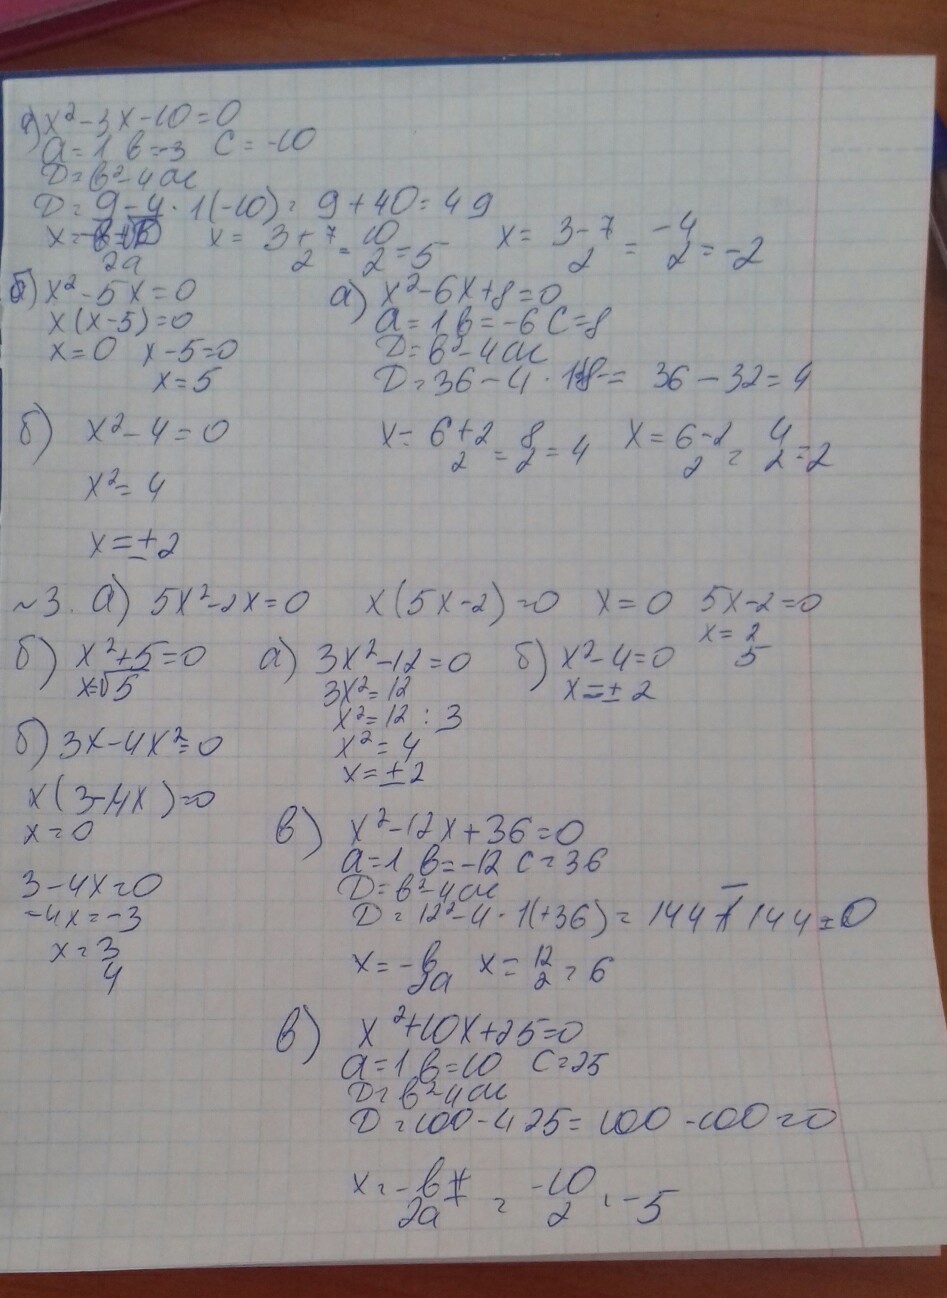 а) x²-3x-10=0
a=1 b=-3 c=-10
D=b²-4ac
D=9-4·1(-10)=9+40=49
x= 2a x=3+7/2=10/2=5 x=3-7/2=-4/2=-2
б) x²-5x=0
x(x-5)=0
x=0 x-5=0
x=5
а) x²-6x+8=0
a=1 b=-6 c=8
D=b²-4ac
D=36-4·1·8=36-32=4
x=6+2/2=8/2=4 x=6-2/2=4/2=2
б) x²-4=0
x²=4
x=±2
~3. а) 5x²-2x=0 x(5x-2)=0 x=0 5x-2=0
x=2/5
б) x²+5=0
x=√5
а) 3x²-12=0
3x²=12
x²=12:3
x²=4
x=±2
б) x²-4=0
x=±2
б) 3x-4x²=0
x(3-4x)=0
x=0
3-4x=0
-4x=-3
x=3/4
в) x²-12x+36=0
a=1 b=-12 c=36
D=b²-4ac
D=12²-4·1(+36)=144-144=0
x=-b/2a x=12/2=6
в) x²+10x+25=0
a=1 b=10 c=25
D=b²-4ac
D=100-4 25=100-100=0
x=-b/2a=-10/2=-5